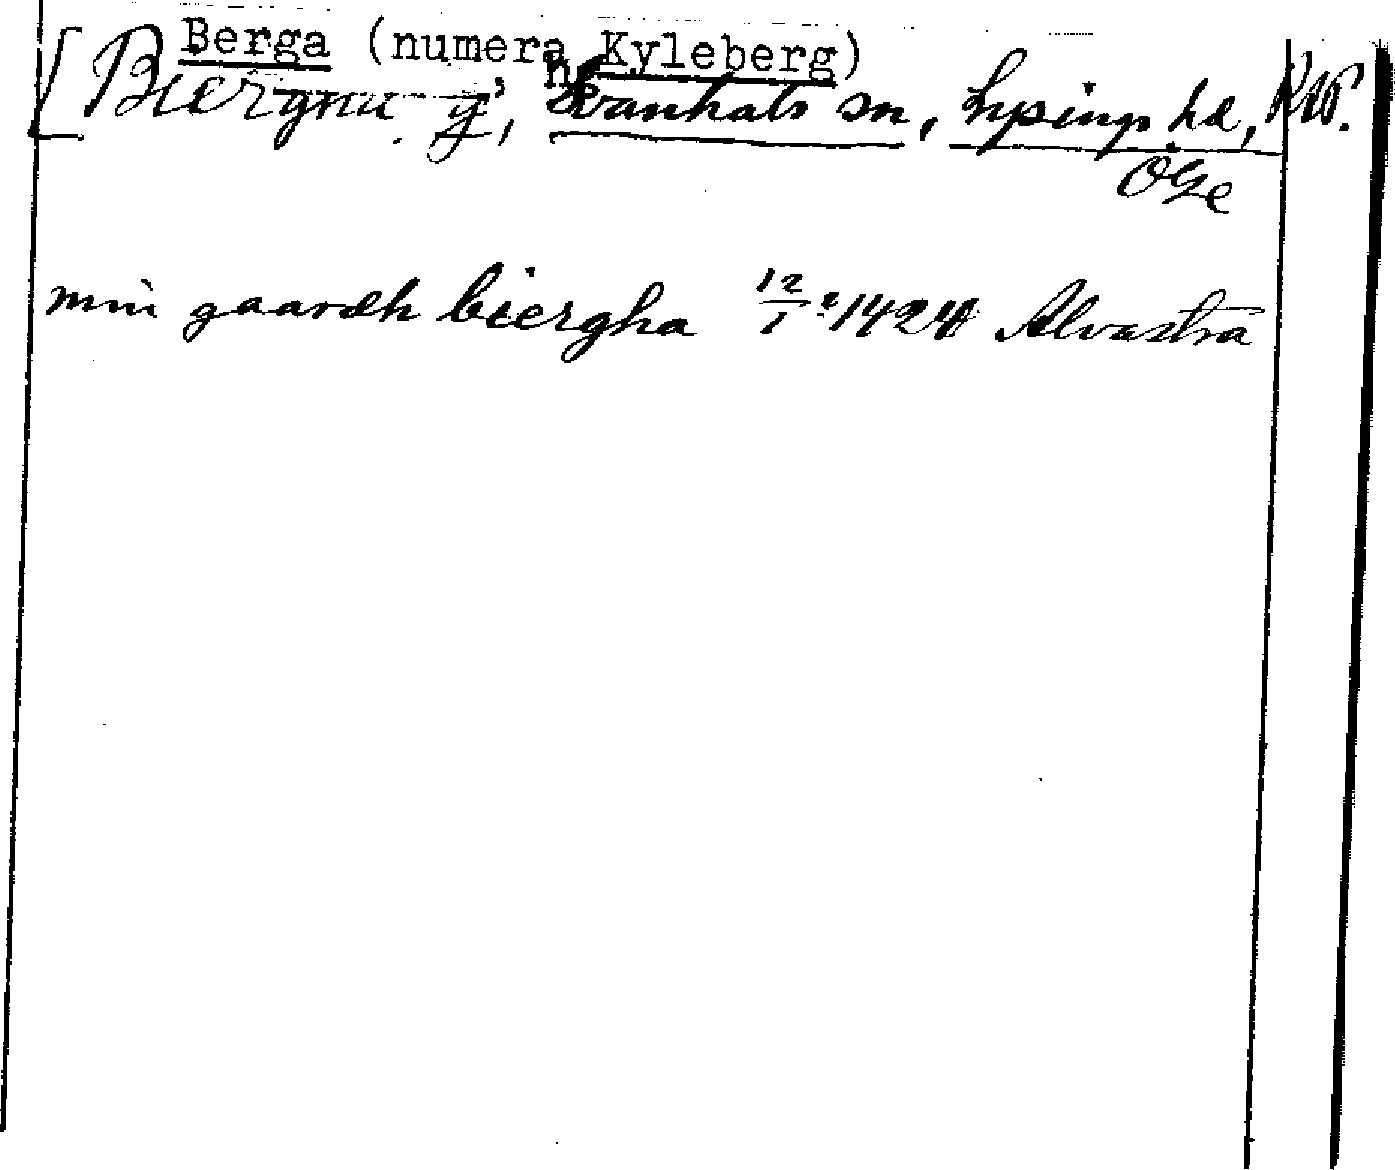 Berga (numera Kyleberg)
[Biergha g', Svanhals sn, Lysings hd,
Ög
min gaardh biergha 12/1 1424 Alvastra